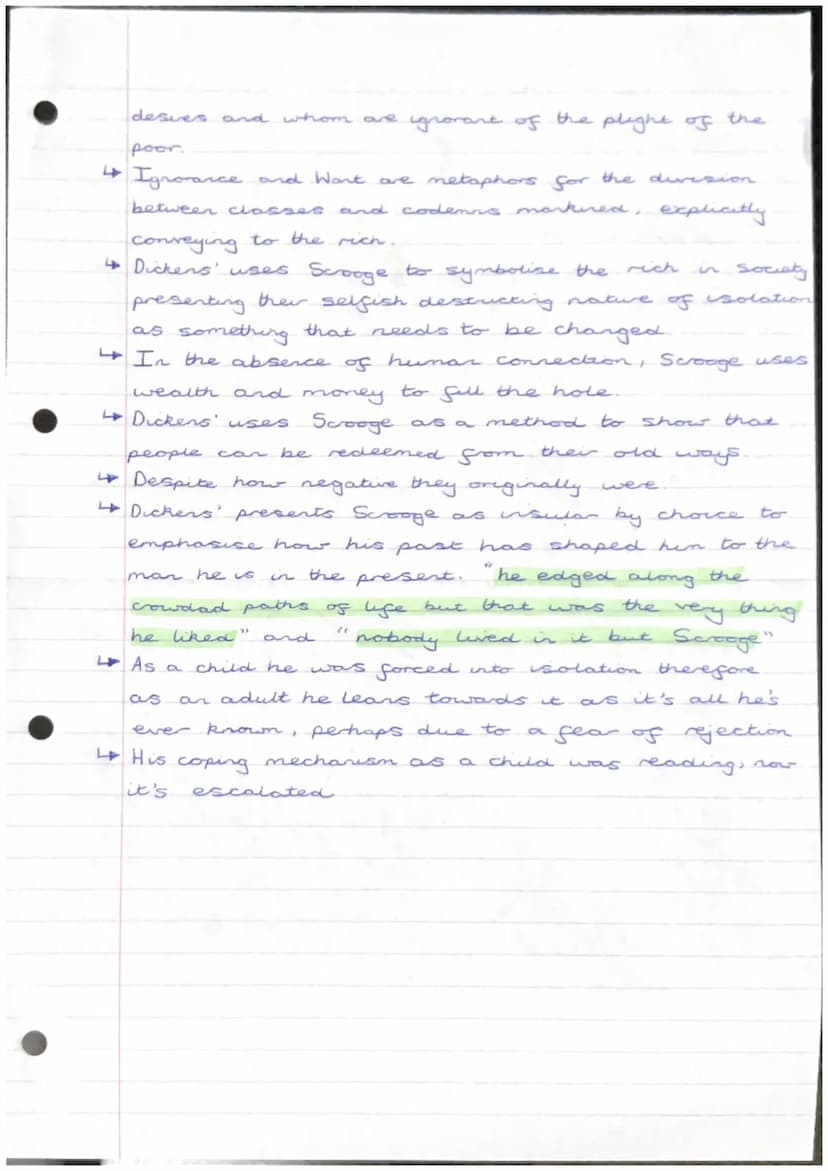 desires and whom are ignorant of the plight of the
poor.
↳ Ignorance and Want are metaphors for the division
between classes and codemns mankined, explicitly
conveying to the rich.
↳ Dickens' uses Scrooge to symbolise the rich in society
presenting their selfish destructing nature of isolation
as something that needs to be changed
↳ In the absence of human connection, Scrooge uses
wealth and money to fill the hole.
↳ Dickens' uses Scrooge as a method to show that
people can be redeemed from their old ways.
↳ Despite how negative they originally were
↳ Dickens' presents Scrooge as insular by choice to
emphasise how his past has shaped him to the
man he is in the present. "he edged along the
crowdad paths of life but that was the very thing
he liked" and "nobody lived in it but Scrooge"
↳ As a child he was forced into isolation therefore
as an adult he leans towards it as it's all he's
ever known, perhaps due to a fear of rejection
↳ His coping mechanism as a child was reading, now
it's escalated